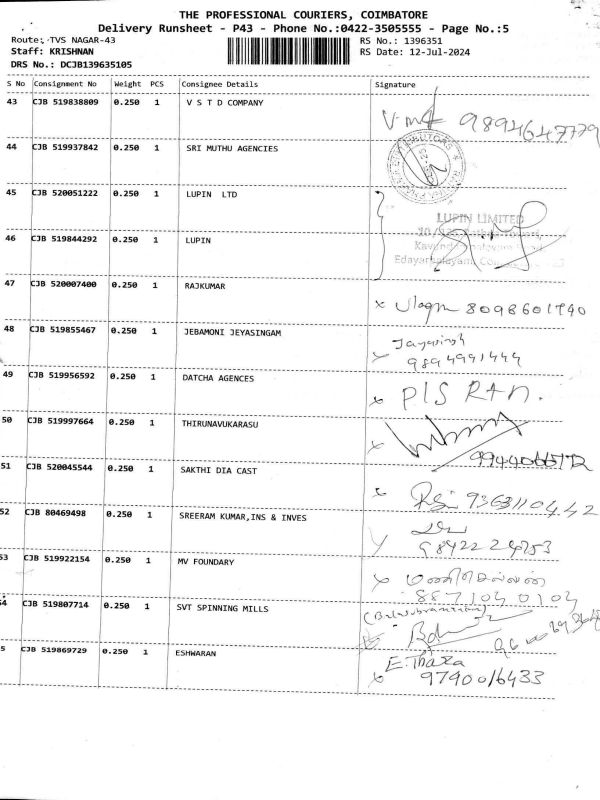 THE PROFESSIONAL COURIERS, COIMBATORE
Delivery Runsheet - P43 - Phone No.:0422-3505555 - Page No.:5
Route: TVS NAGAR-43
RS No.: 1396351
Staff: KRISHNAN
RS Date: 12-Jul-2024
DRS No.: DCJB139635105
S No Consignment No Weight PCS Consignee Details Signature
43 CJB 519838809 0.250 1 V S T D COMPANY
9894647779
44 CJB 519937842 0.250 1 SRI MUTHU AGENCIES
45 CJB 520051222 0.250 1 LUPIN LTD
LUPIN LIMITED
46 CJB 519844292 0.250 1 LUPIN
47 CJB 520007400 0.250 1 RAJKUMAR
x 8098601740
48 CJB 519855467 0.250 1 JEBAMONI JEYASINGAM
Jayasingh
9894991444
49 CJB 519956592 0.250 1 DATCHA AGENCES
x PIS RTN.
50 CJB 519997664 0.250 1 THIRUNAVUKARASU
x
51 CJB 520045544 0.250 1 SAKTHI DIA CAST
x 9363110442
52 CJB 80469498 0.250 1 SREERAM KUMAR,INS & INVES
53 CJB 519922154 0.250 1 MV FOUNDARY
x
8871040104
54 CJB 519807714 0.250 1 SVT SPINNING MILLS
(Balasubramaniam)
5 CJB 519869729 0.250 1 ESHWARAN
x E.Thara
9790016433